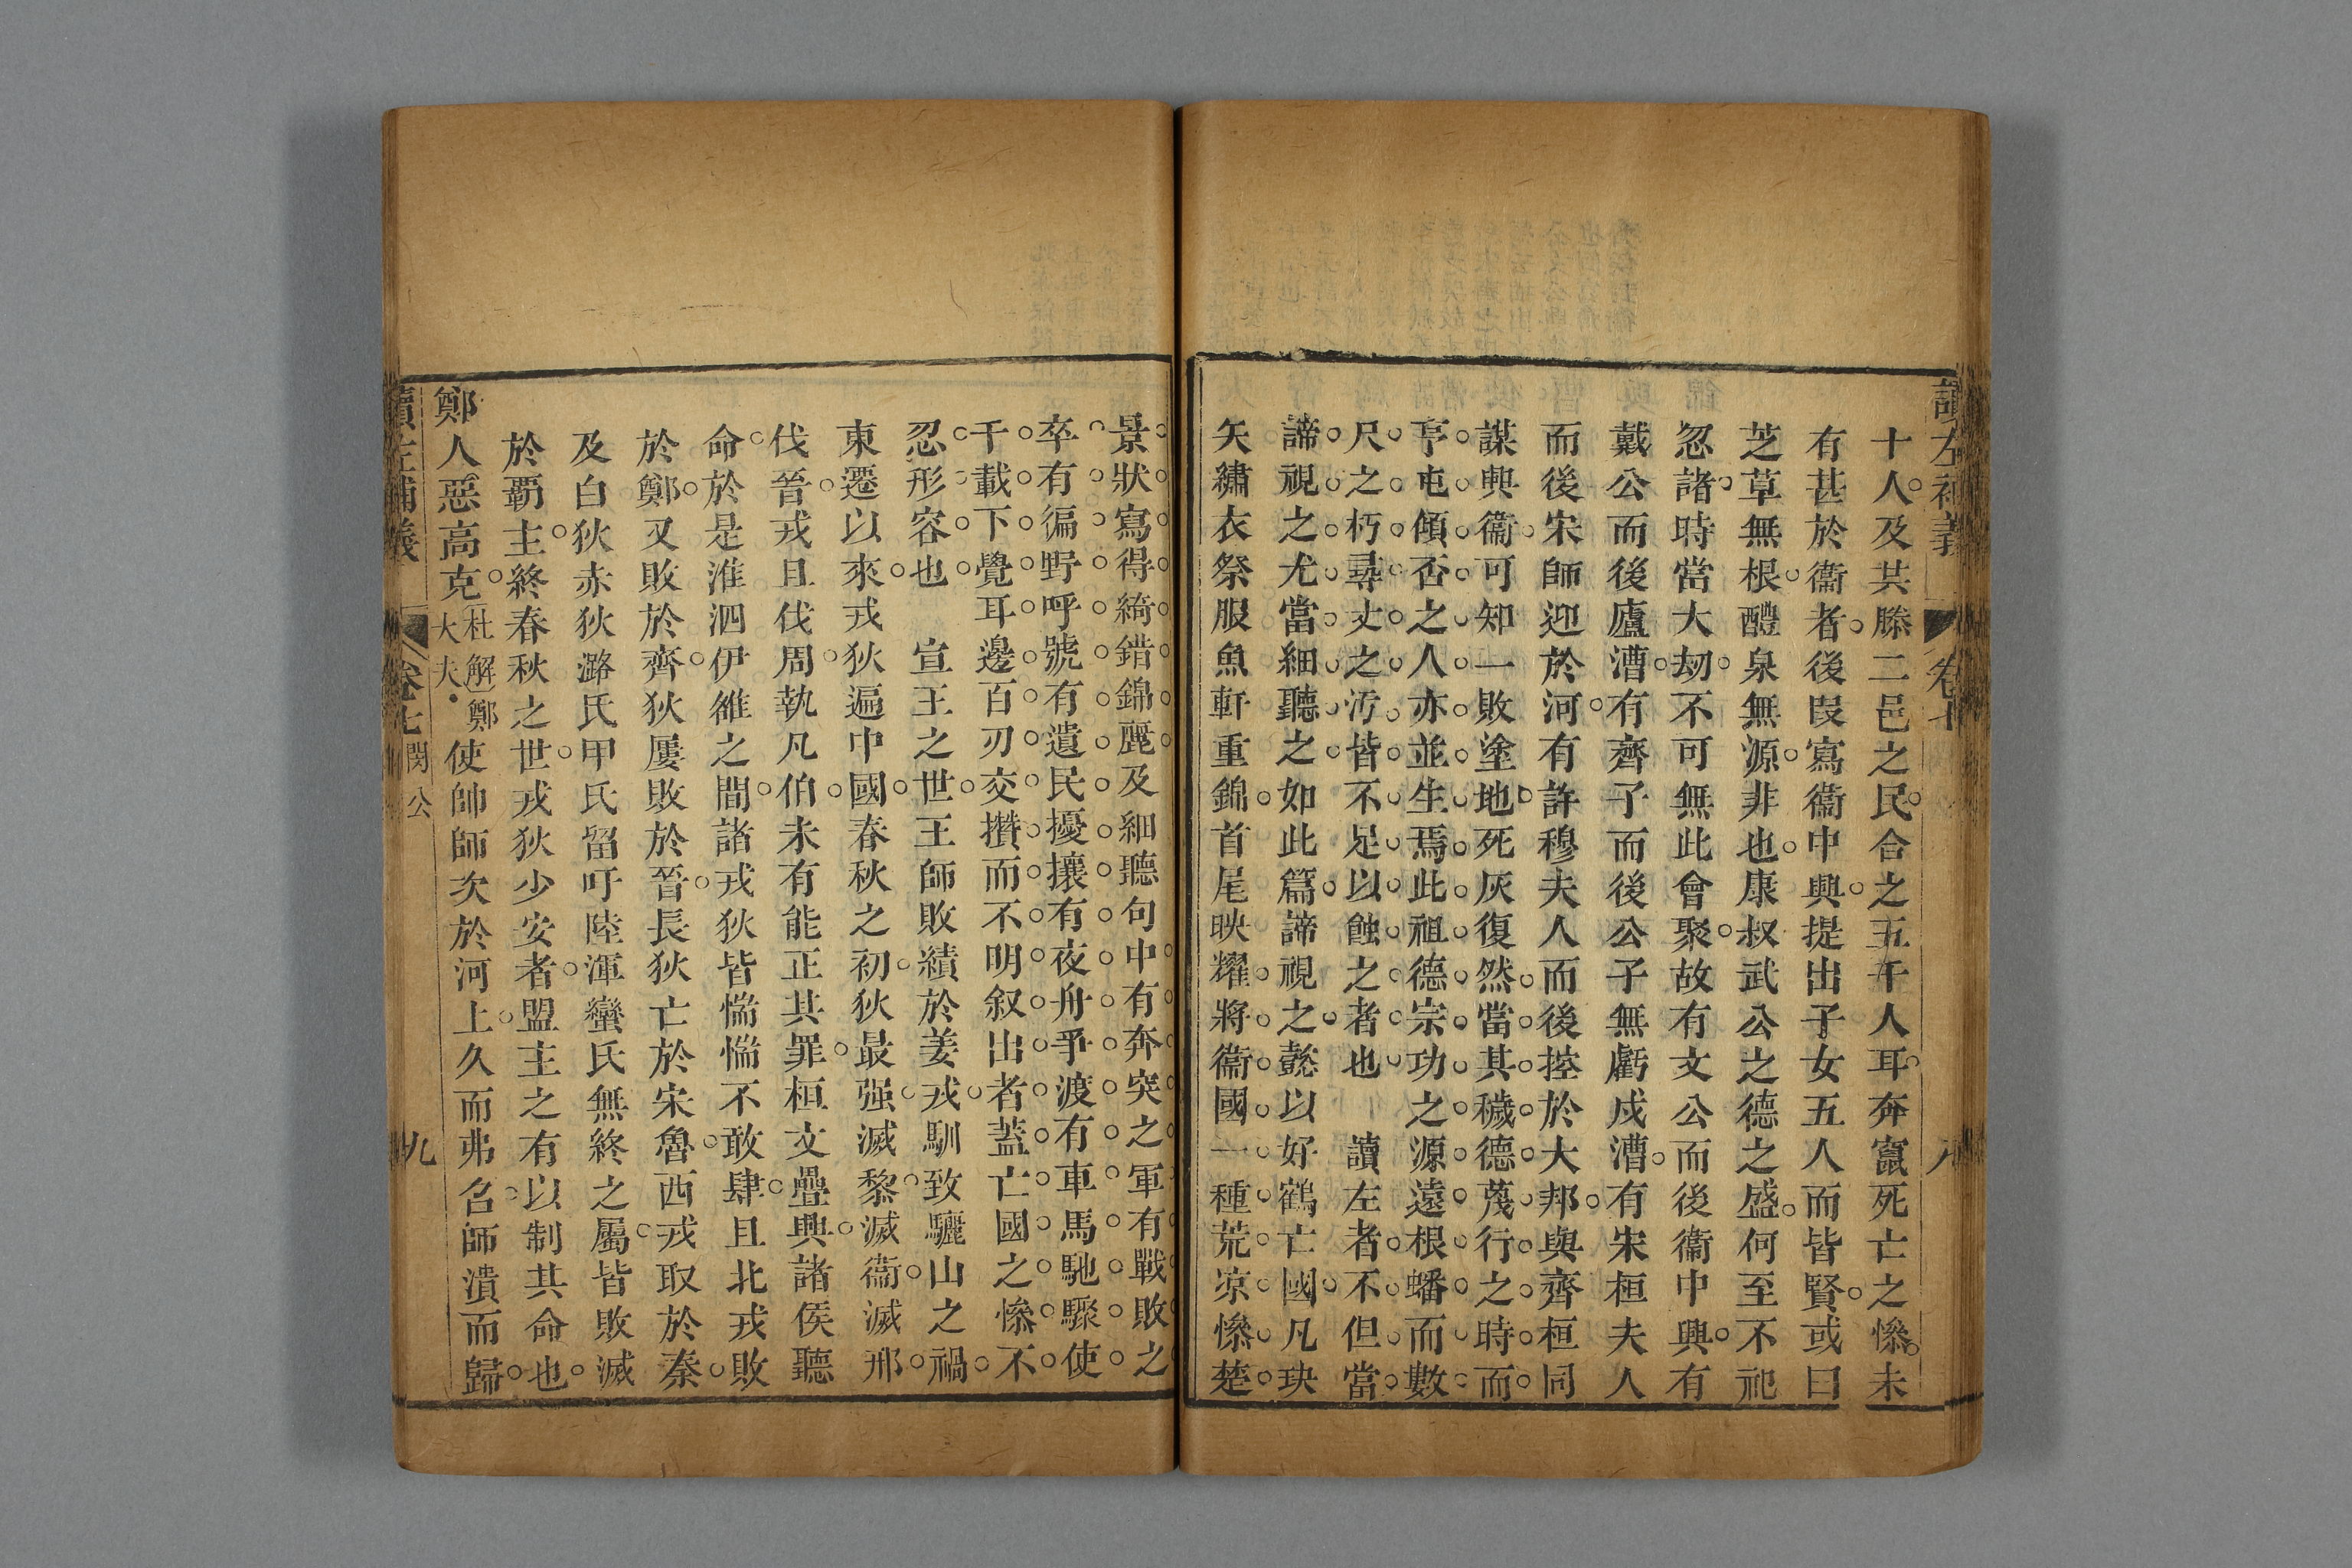 讀左補義
卷七
八
十人及共滕二邑之民合之五千人耳奔竄死亡之慘未
有甚於衞者後段寫衞中興提出子女五人而皆賢或曰
芝草無根醴泉無源非也康叔武公之德之盛何至不祀
忽諸時當大刼不可無此會聚故有文公而後衞中興有
戴公而後廬漕有齊子而後公子無虧戍漕有宋桓夫人
而後宋師迎於河有許穆夫人而後控於大邦與齊桓同
謀興衞可知一敗塗地死灰復然當其穢德蔑行之時而
亨屯傾否之人亦並生焉此祖德宗功之源遠根蟠而數
尺之朽尋丈之汚皆不足以蝕之者也　讀左者不但當
諦視之尤當細聽之如此篇諦視之懿以好鶴亡國凡玦
矢繡衣祭服魚軒重錦首尾映耀將衞國一種荒凉慘楚
景狀寫得綺錯錦麗及細聽句中有奔突之軍有戰敗之
卒有徧野呼號有遺民擾攘有夜舟爭渡有車馬馳驟使
千載下覺耳邊百刃交攢而不明叙出者葢亡國之慘不
忍形容也　宣王之世王師敗績於姜戎馴致驪山之禍
東遷以來戎狄遍中國春秋之初狄最强滅黎滅衞滅邢
伐晉戎且伐周執凡伯未有能正其罪桓文疊興諸侯聽
命於是淮泗伊雒之間諸戎狄皆惴惴不敢肆且北戎敗
於鄭又敗於齊狄屢敗於晉長狄亡於宋魯西戎取於秦
及白狄赤狄潞氏甲氏留吁陸渾蠻氏無終之屬皆敗滅
於霸主終春秋之世戎狄少安者盟主之有以制其命也
鄭人惡高克杜解鄭大夫使帥師次於河上久而弗召師潰而歸
讀左補義
卷七
閔公
九